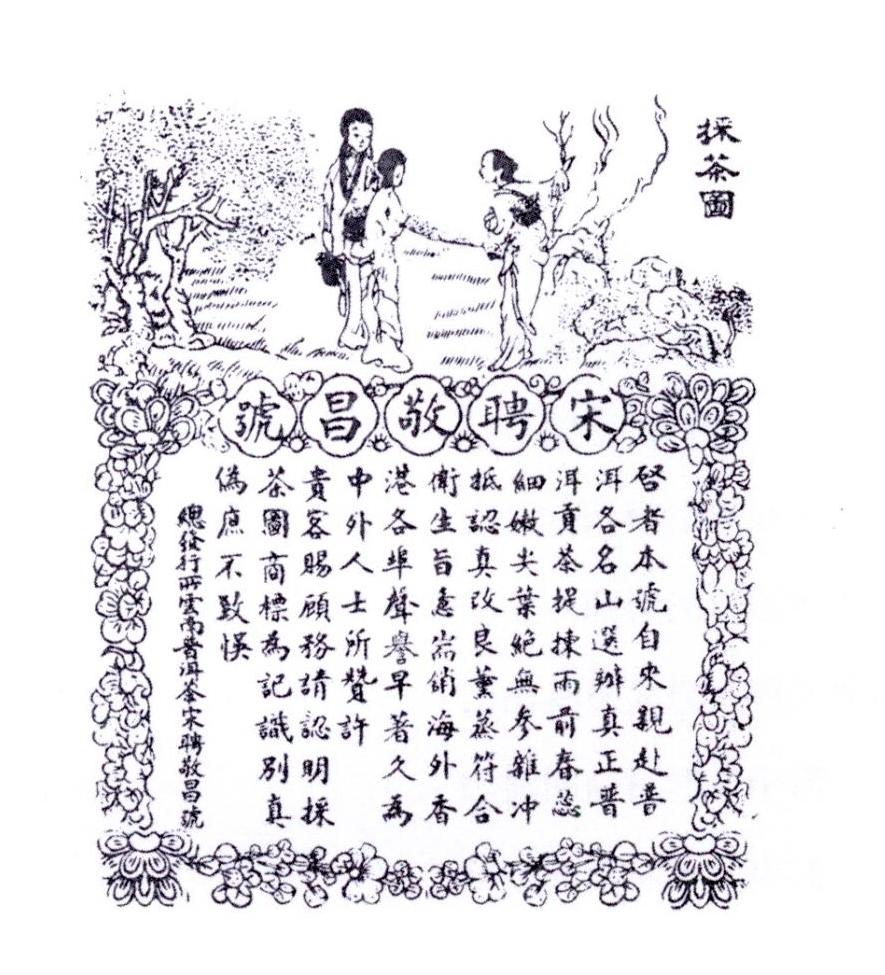 採茶圖
宋聘敬昌號
啓者本號自來親赴普
洱各名山選辦真正普
洱貢茶提揀雨前春蕊
細嫩尖葉絕無參雜冲
抵認真改良薰蒸符合
衛生旨意耑銷海外香
港各埠聲譽早著久為
中外人士所贊許
貴客賜顧務請認明採
茶圖商標為記識別真
偽庶不致悞
總發行所雲南普洱茶宋聘敬昌號